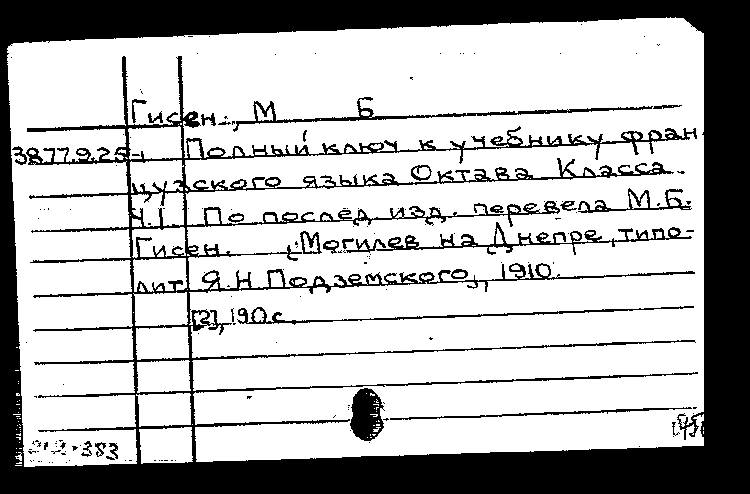 Гисен., М Б
3877.9.25-1 Полный ключ к учебнику фран-
цузского языка Октава Класса.
Ч.I. По послед. изд. перевела М.Б.
Гисен. Могилев на Днепре, типо-
лит. Я.Н. Подземского, 1910.
[2], 190 с.
383